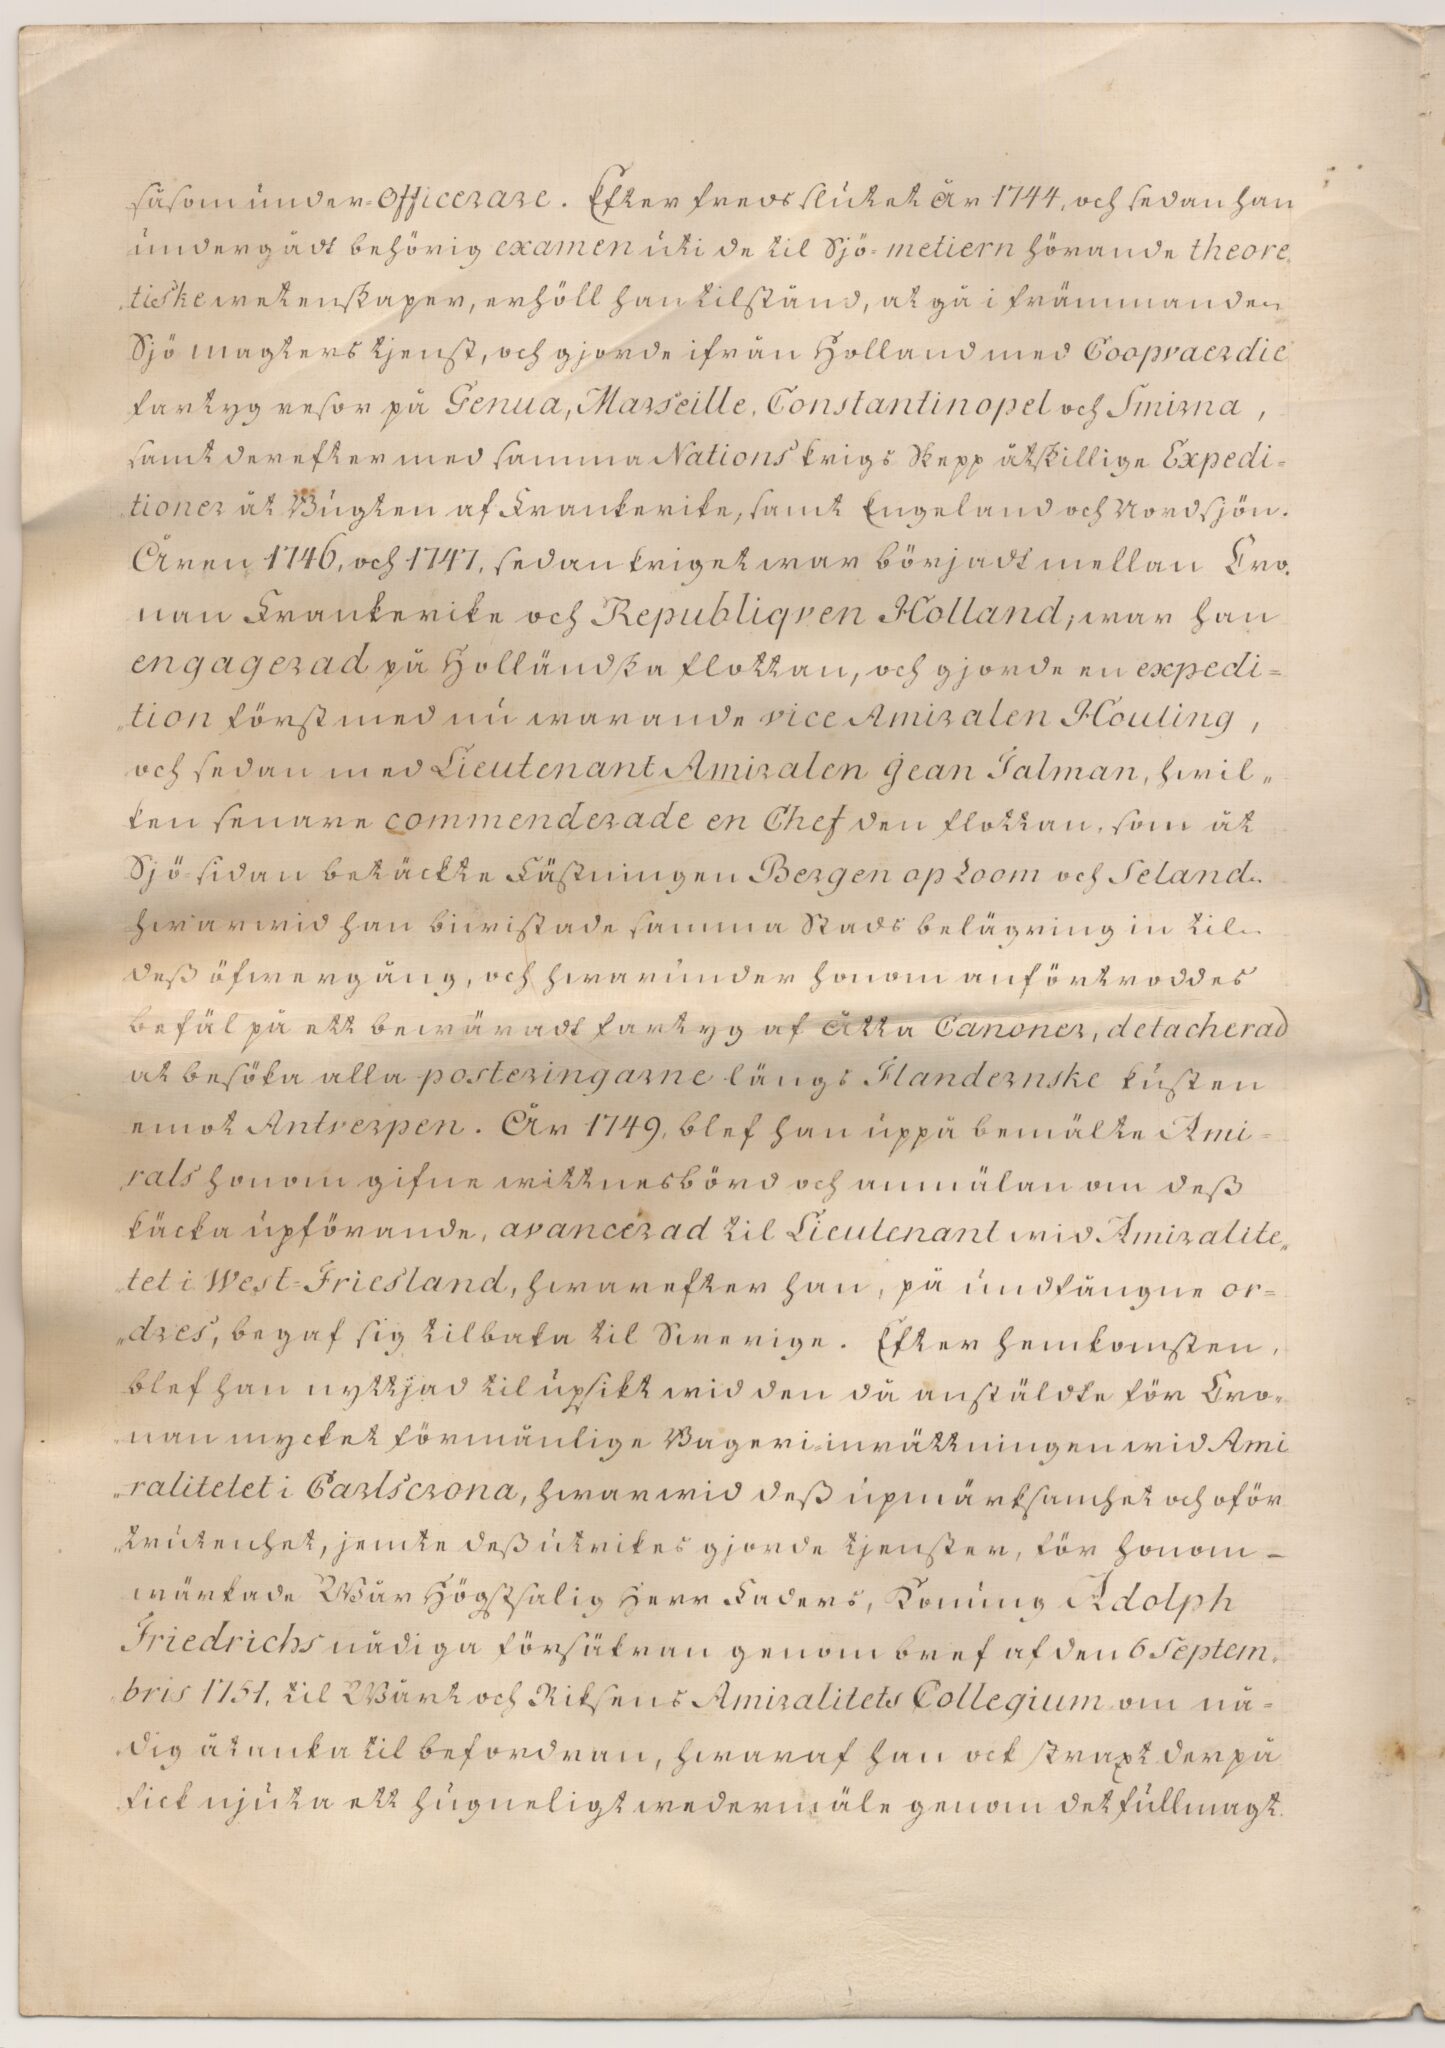 såsom under-Officerare. Efter fredsslutet År 1744, och sedan han
undergådt behörig examen uti de til Sjö-metiern hörande theore„
„tiske wetenskaper, erhöll han tilstånd, at gå i främmande
Sjömagters tjenst, och gjorde ifrån Holland med Coopvaerdie
fartyg resor på Genua, Marseille, Constantinopel och Smirna,
samt derefter med samma Nations krigs Skepp åtskillige Expedi-
„tioner åt Bugten af Frankerike, samt Engeland och Nordsjön.
Åren 1746, och 1747, sedan kriget war börjadt mellan Cro„
nan Frankerike och Republiqven Holland; war han
engagerad på Holländska flottan, och gjorde en expedi-
„tion först med nu warande vice Amiralen Houting,
och sedan med Lieutenant Amiralen Jean Talman, hwil„
ken senare commenderade en Chef den flottan, som åt
Sjö-sidan betäckte Fästningen Bergen op Zoom och Seland
hwarwid han biwistade samma Stads belägring in til
deß öfwergång, och hwarunder honom anförtroddes
befäl på ett bewäradt fartyg af Åtta Canoner, detacherad
at besöka alla posteringarne längs Flandernske kusten
emot Antverpen. År 1749, blef han uppå bemälte Ami-
rals honom gifne wittnesbörd och anmälan om deß
käcka upförande, avancerad til Lieutenant wid Amiralite„
tet i West-Friesland, hwarefter han, på undfångne or-
„dres, begaf sig tilbaka til Swerige. Efter hemkomsten,
blef han nyttjad til upsikt wid den då anstäldte för Cro-
nan mycket förmånlige Bageri-inrättningen wid Ami
„ralitetet i Carlscrona, hwarwid deß upmärksamhet och oför
„trutenhet, jemte deß utrikes gjorde tjenster, för honom –
wärkade Wår Högstsalig Herr Faders, Konung Adolph
Friedrichs nådiga försäkran genom bref af den 6 Septem„
bris 1751, til Wårt och Riksens Amiralitets Collegium om nå-
dig åtanka til befordran, hwaraf han ock straxt derpå
fick njuta ett hugneligt wedermäle genom det fullmagt